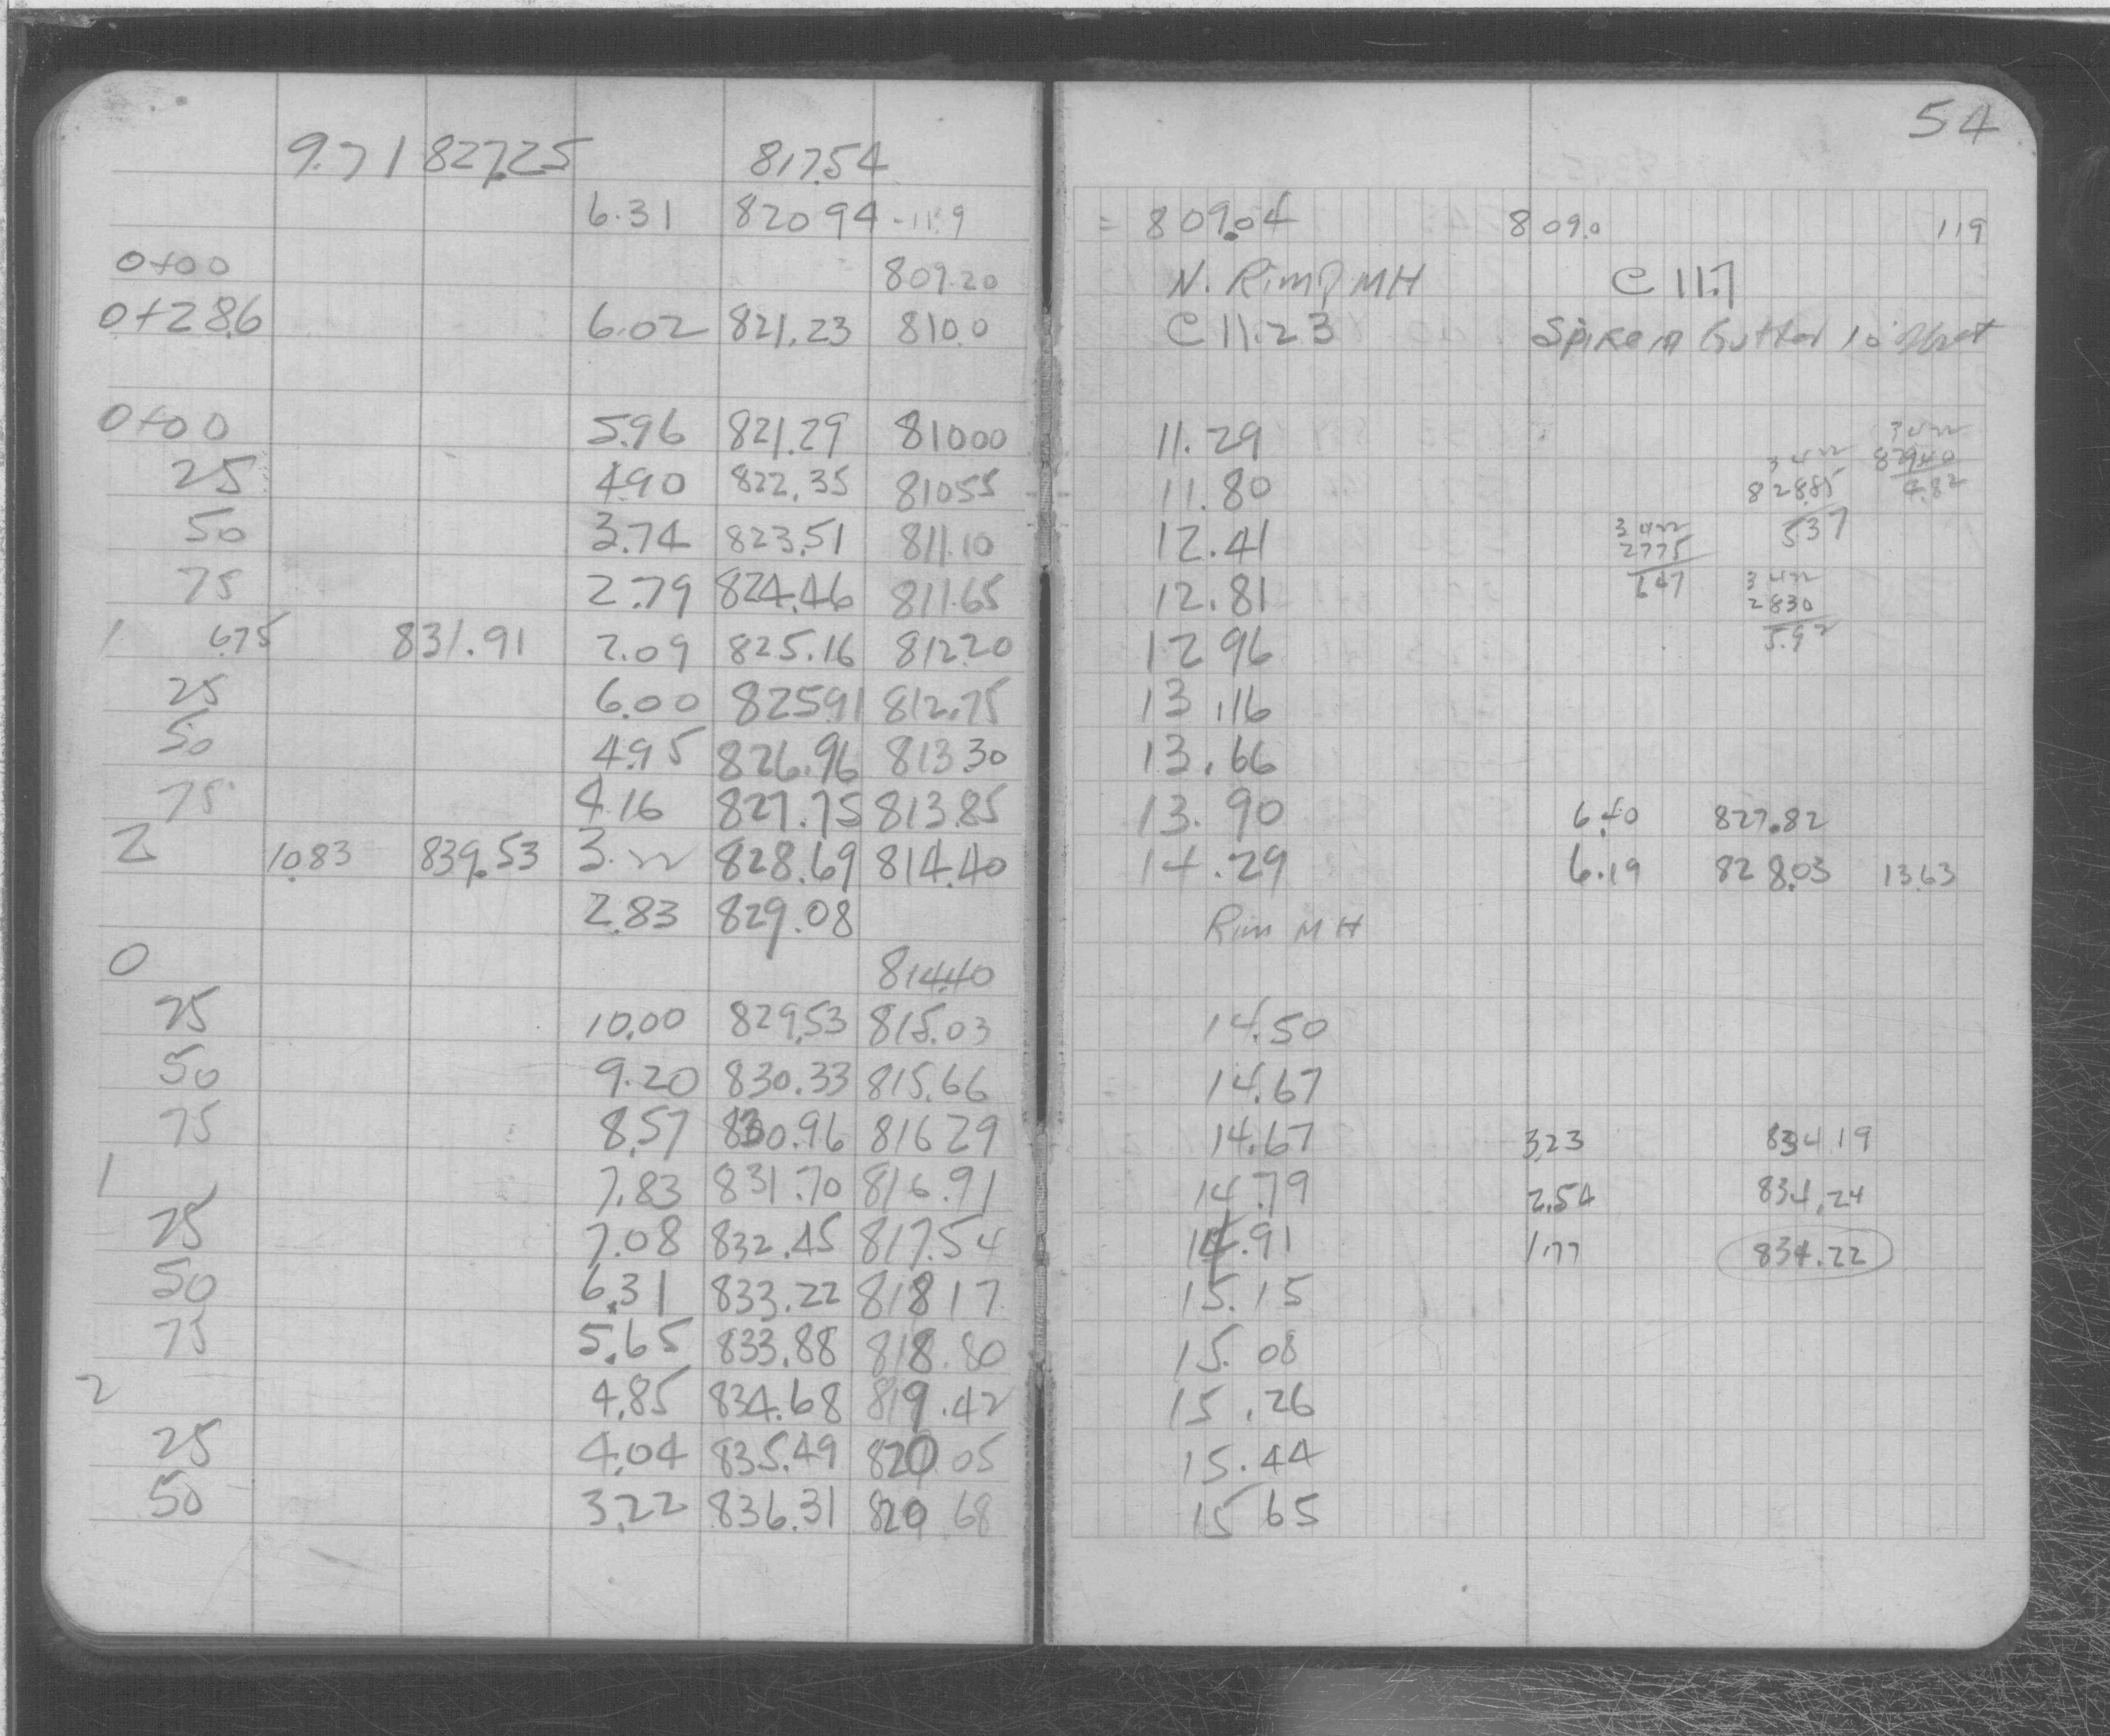 54
9.71 827.25 817.54
6.31 820.94 -11.9 = 809.04 809.0 119
0+00 809.20 N. Rim of MH C 11.7
0+28.6 6.02 821.23 810.0 C 11.23 Spike in Gutter 10' Offset
0+00 5.96 821.29 81000 11.29
25 4.90 822.35 81055 11.80
50 3.74 823.51 811.10 12.41
75 2.79 824.46 811.65 12.81
1 6.75 831.91 2.09 825.16 812.20 12 96
25 6.00 825.91 812.75 13.16
50 4.95 826.96 813.30 13.66
75 4.16 827.75 813.85 13.90 6.40 827.82
2 10.83 839.53 3.22 828.69 814.40 14.29 6.19 828.03 13.63
2.83 829.08 Rim MH
0 814.40
25 10.00 829.53 815.03 14.50
50 9.20 830.33 815.66 14.67
75 8.57 830.96 816 29 14.67 3.23 834 19
1 7.83 831.70 816.91 14.79 2.54 834.24
25 7.08 832.45 817.54 14.91 1.77 834.22
50 6.31 833.22 818 17 15.15
75 5.65 833.88 818.80 15.08
2 4.85 834.68 819.42 15.26
25 4.04 835.49 820 05 15.44
50 3.22 836.31 820 68 15 65
3422
82940
4.82
3422
828.85
537
3422
2775
647
3422
2830
5.92